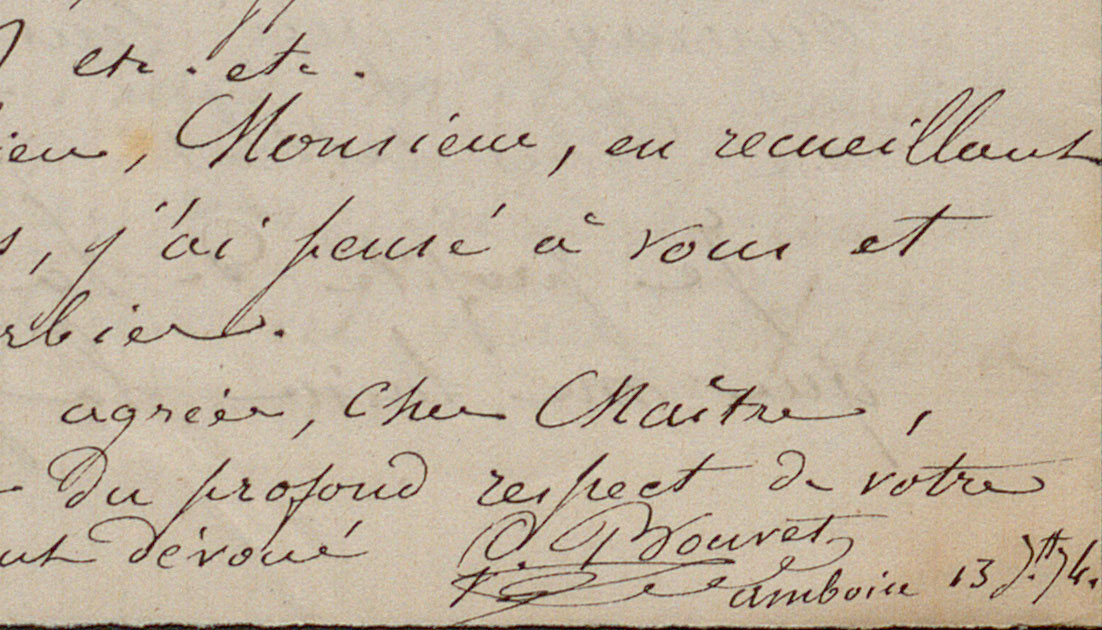 etc. etc.
ien, Monsieur, en recueillant
s, j'ai pensé à vous et
rbier.
agréer, Cher Maître,
du profond respect de votre
ut dévoué
Bouvet
amboise 13 Jtt 74.